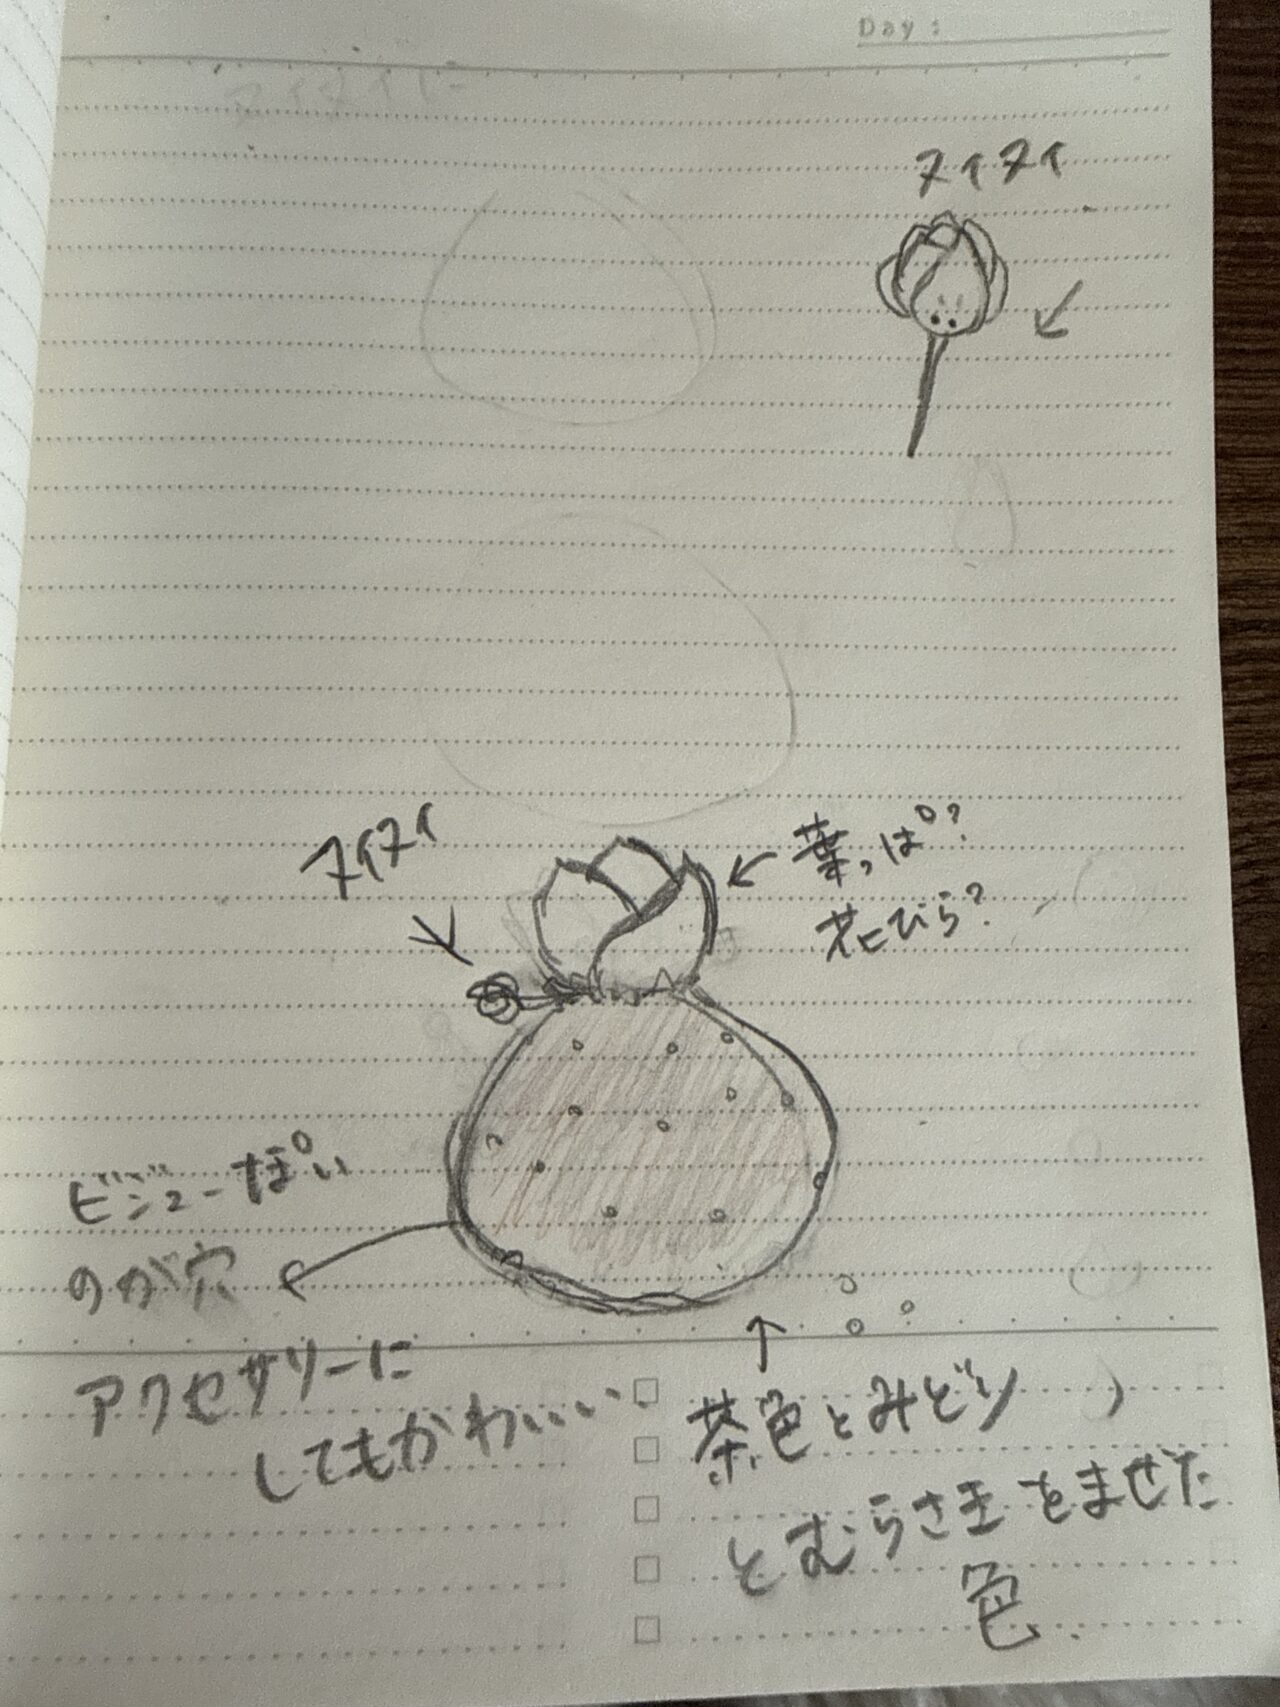 Day:
ヌイヌイ
ヌイヌイ
葉っぱ?
花びら?
ビジューぽい
のが穴
アクセサリーに
してもかわいい
茶色とみどり
とむらさきをまぜた
色